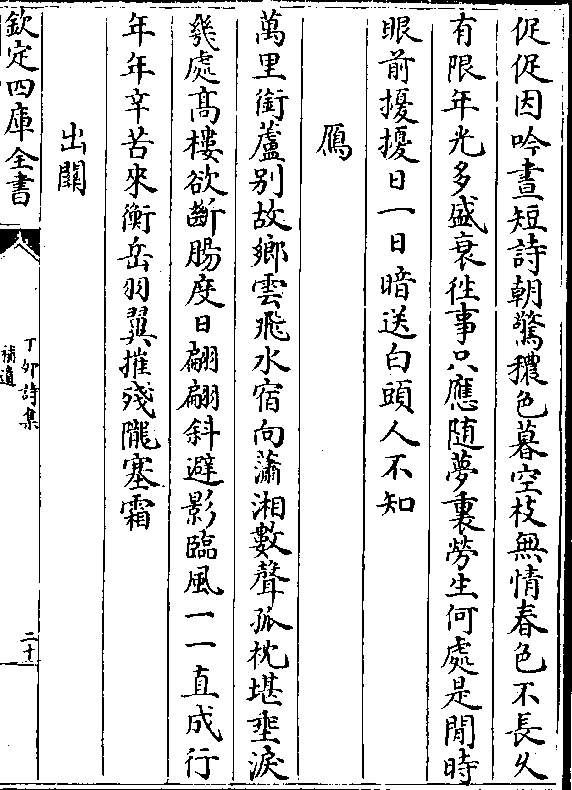 促促因吟晝短詩朝驚穠色暮空枝無情春色不長久
有限年光多盛衰徃事只應随夢裏勞生何處是閒時
眼前擾擾日一日暗送白頭人不知
鴈
萬里銜蘆别故鄉雲飛水宿向瀟湘數聲孤枕堪垂淚
幾處髙樓欲斷腸度日翩翩斜避影臨風一一直成行
年年辛苦來衡岳羽翼摧殘隴塞霜
出關
欽定四庫全書
丁卯詩集
補遺
二十